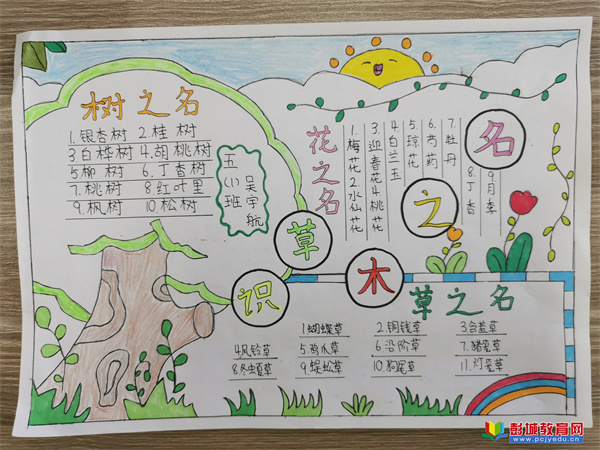 树之名
1.银杏树 2.桂树
3白桦树 4.胡桃树
5.柳树 6.丁香树
7.桃树 8.红叶里
9.枫树 10.松树
五(1)班
吴宇航
花之名
1.梅花 2.水仙花
3.迎春花 4.桃花
4.白兰玉
5.琼花
6.芍药
7.牡丹
8.丁香
9.月季
识草木之名
草之名
1.蝴蝶草 2.铜钱草 3.含羞草
4.风铃草 5.鸡爪草 6.沿阶草 7.猪笼草
8.冬虫夏草 9.蜈蚣草 10.狗尾草 11.灯芯草
彭城教育网
www.pcjyedu.cn